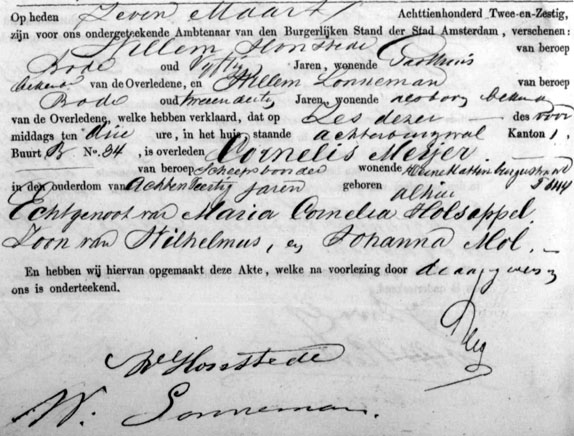 Op heden Zeven Maart Achttienhonderd Twee-en-Zestig,
zijn voor ons ondergeteekende Ambtenaar van den Burgerlijken Stand der Stad Amsterdam, verschenen:
Willem Hofstede van beroep
Bode oud Vyftig Jaren, wonende Gasthuis
bekende van de Overledene, en Willem Sonneman van beroep
Bode oud Jaren, wonende alsvoren bekende
van de Overledene, welke hebben verklaard, dat op Zes dezer des voor
middags ten drie ure, in het huis, staande achterburgwal Kanton 1,
Buurt B No. 34, is overleden Cornelis Meijer
van beroep wonende
in den ouderdom van Achtenveertig jaren geboren alhier
Echtgenoot van Maria Cornelia Holsappel.
Zoon van Wilhelmus, en Johanna Mol.
En hebben wij hiervan opgemaakt deze Akte, welke na voorlezing door de aangevers
ons is onderteekend.
W Hofstede
W. Sonneman.